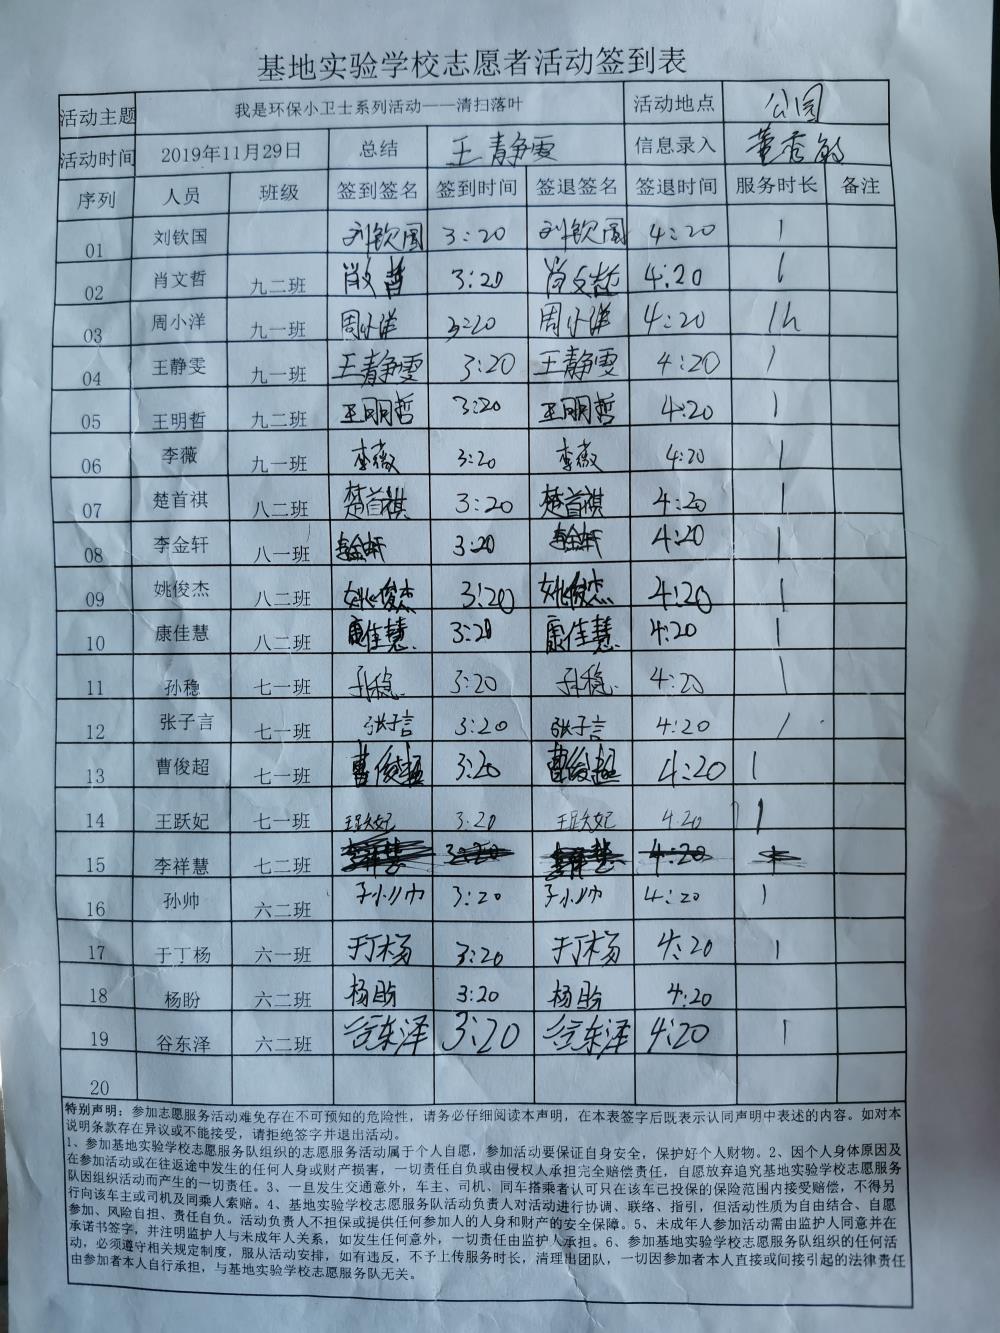 基地实验学校志愿者活动签到表
活动主题 我是环保小卫士系列活动——清扫落叶 活动地点 公园
活动时间 2019年11月29日 总结 王静雯 信息录入 董秀敏
序列 人员 班级 签到签名 签到时间 签退签名 签退时间 服务时长 备注
01 刘钦国 刘钦国 3:20 刘钦国 4:20 1
02 肖文哲 九二班 肖文哲 3:20 肖文哲 4:20 1
03 周小洋 九一班 周小洋 3:20 周小洋 4:20 1h
04 王静雯 九一班 王静雯 3:20 王静雯 4:20 1
05 王明哲 九二班 王明哲 3:20 王明哲 4:20 1
06 李薇 九一班 李薇 3:20 李薇 4:20 1
07 楚首祺 八二班 楚首祺 3:20 楚首祺 4:20 1
08 李金轩 八一班 李金轩 3:20 李金轩 4:20 1
09 姚俊杰 八二班 姚俊杰 3:20 姚俊杰 4:20 1
10 康佳慧 八二班 康佳慧 3:20 康佳慧 4:20 1
11 孙稳 七一班 孙稳 3:20 孙稳 4:20 1
12 张子言 七一班 张子言 3:20 张子言 4:20 1
13 曹俊超 七一班 曹俊超 3:20 曹俊超 4:20 1
14 王跃妃 七一班 王跃妃 3:20 王跃妃 4:20 1
15 李祥慧 七二班 李祥慧 3:20 李祥慧 4:20 1
16 孙帅 六二班 孙帅 3:20 孙帅 4:20 1
17 于丁杨 六一班 于丁杨 3:20 于丁杨 4:20 1
18 杨盼 六二班 杨盼 3:20 杨盼 4:20
19 谷东泽 六二班 谷东泽 3:20 谷东泽 4:20 1
20
特别声明：参加志愿服务活动难免存在不可预知的危险性，请务必仔细阅读本声明，在本表签字后既表示认同声明中表述的内容。如对本
说明条款存在异议或不能接受，请拒绝签字并退出活动。
1、参加基地实验学校志愿服务队组织的志愿服务活动属于个人自愿，参加活动要保证自身安全，保护好个人财物。2、因个人身体原因及
在参加活动或在往返途中发生的任何人身或财产损害，一切责任自负或由侵权人承担完全赔偿责任，自愿放弃追究基地实验学校志愿服务
队因组织活动而产生的一切责任。3、一旦发生交通意外，车主、司机、同车搭乘者认可只在该车已投保的保险范围内接受赔偿，不得另
行向该车主或司机及同乘人索赔。4、基地实验学校志愿服务队活动负责人对活动进行协调、联络、指引，但活动性质为自由结合、自愿
参加、风险自担、责任自负。活动负责人不担保或提供任何参加人的人身和财产的安全保障。5、未成年人参加活动需由监护人同意并在
承诺书签字，并注明监护人与未成年人关系，如发生任何意外，一切责任由监护人承担。6、参加基地实验学校志愿服务队组织的任何活
动，必须遵守相关规定制度，服从活动安排，如有违反，不予上传服务时长，清理出团队，一切因参加者本人直接或间接引起的法律责任
由参加者本人自行承担，与基地实验学校志愿服务队无关。